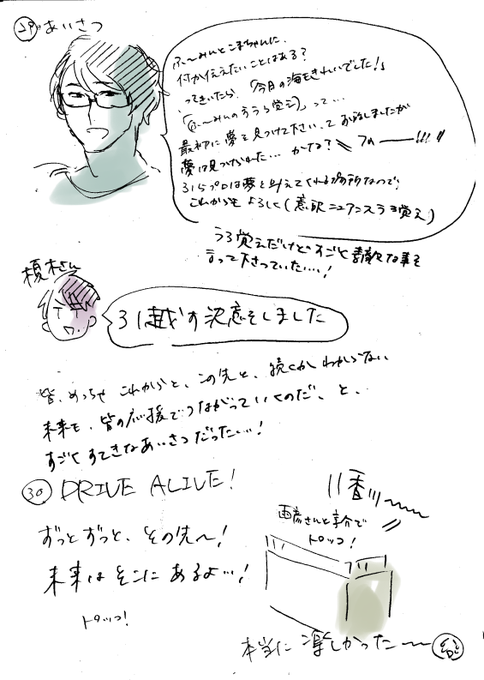 ㉙ あいさつ
ふ〜みんとこまちゃんに、
付け加えたいことはある?
ってきいたら、「今日の海もきれいでした!」
「(ふ〜みんのうろ覚え)」って…
最初に夢を見つけて下さいってお話しましたが
夢は見つけられた…かな? フゥーーー!!!
315プロは夢を与えてくれる場所なので、
これからもよろしく(意訳ニュアンスうろ覚え)
うろ覚えだけどすごく素敵な事を
言って下さっていた…!
榎木さん
31越す決意をしました
皆、めっちゃ これからと、この先と、続くかわからない
未来を、皆の応援でつながっていくのだ、と、
すごくすてきなあいさつだった…!
㉚ DRIVE ALIVE!
ずっとずっと、その先へ!
未来はそこにあるよ…!
トロッコ!
11番
雨彦さんと享介で
トロッコ!
本当に楽しかった〜〜 終